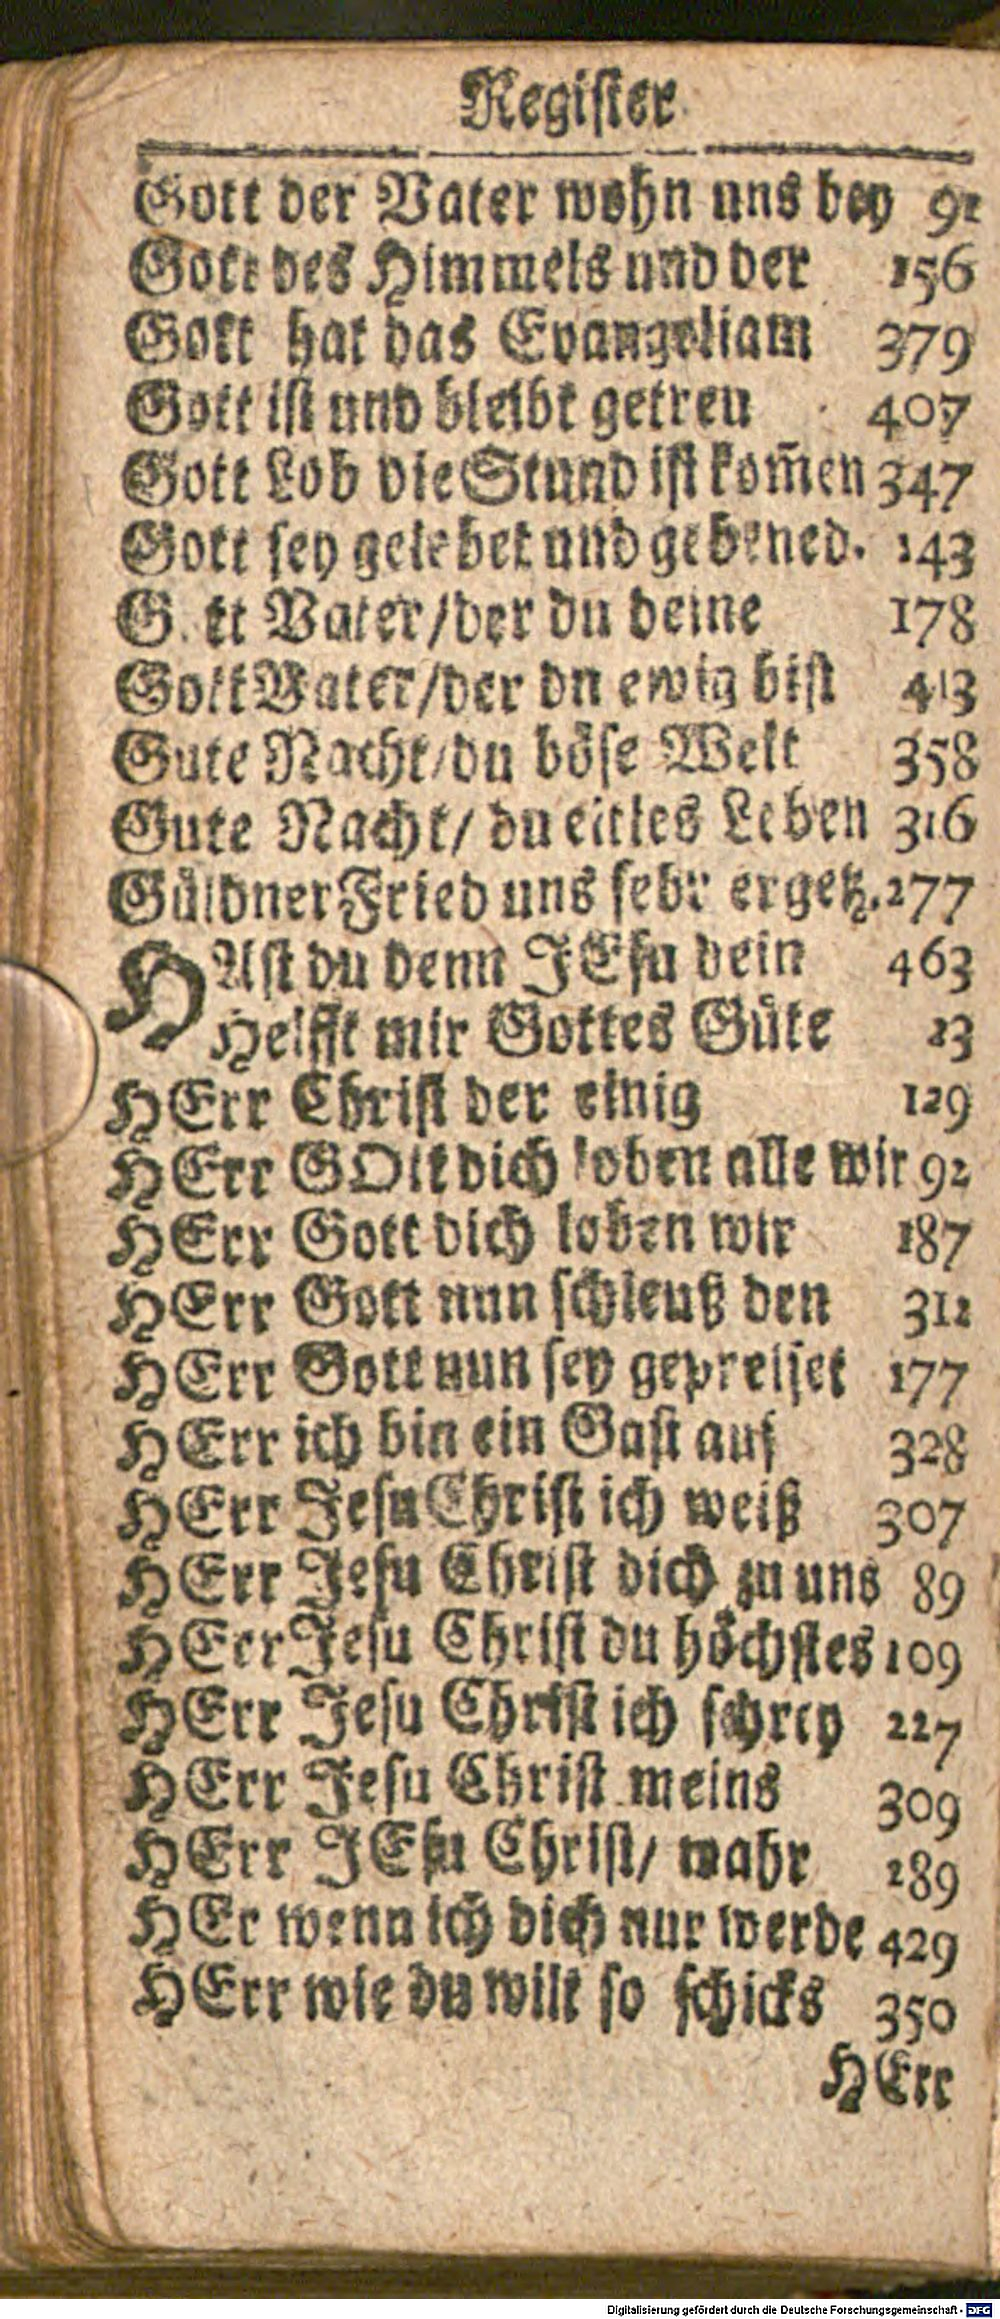 Register
Gott der Vater wohn uns bey 91
Gott des Himmels und der 156
Gott hat das Evangelium 379
Gott ist und bleibt getreu 407
Gott Lob die Stund ist kom̃en 347
Gott sey gelobet und gebened. 143
G tt Vater/der du deine 178
Gott Vater/der du ewig bist 413
Gute Nacht/du böse Welt 358
Gute Nacht/ du eitles Leben 316
Güldner Fried uns sehr ergetz. 277
HAst du denn JEsu dein 463
Helfft mir Gottes Güte 23
HErr Christ der einig 129
HErr GOtt dich loben alle wir 92
HErr Gott dich loben wir 187
HErr Gott nun schleuß den 312
HErr Gott nun sey gepreiset 177
HErr ich bin ein Gast auf 328
HErr Jesu Christ ich weiß 307
HErr Jesu Christ dich zu uns 89
HErr Jesu Christ du höchstes 109
HErr Jesu Christ ich schrey 227
HErr Jesu Christ meins 309
HErr JEsu Christ/ wahr 289
HEr wenn ich dich nur werde 429
HErr wie du wilt so schicks 350
HErr
Digitalisierung gefördert durch die Deutsche Forschungsgemeinschaft - DFG